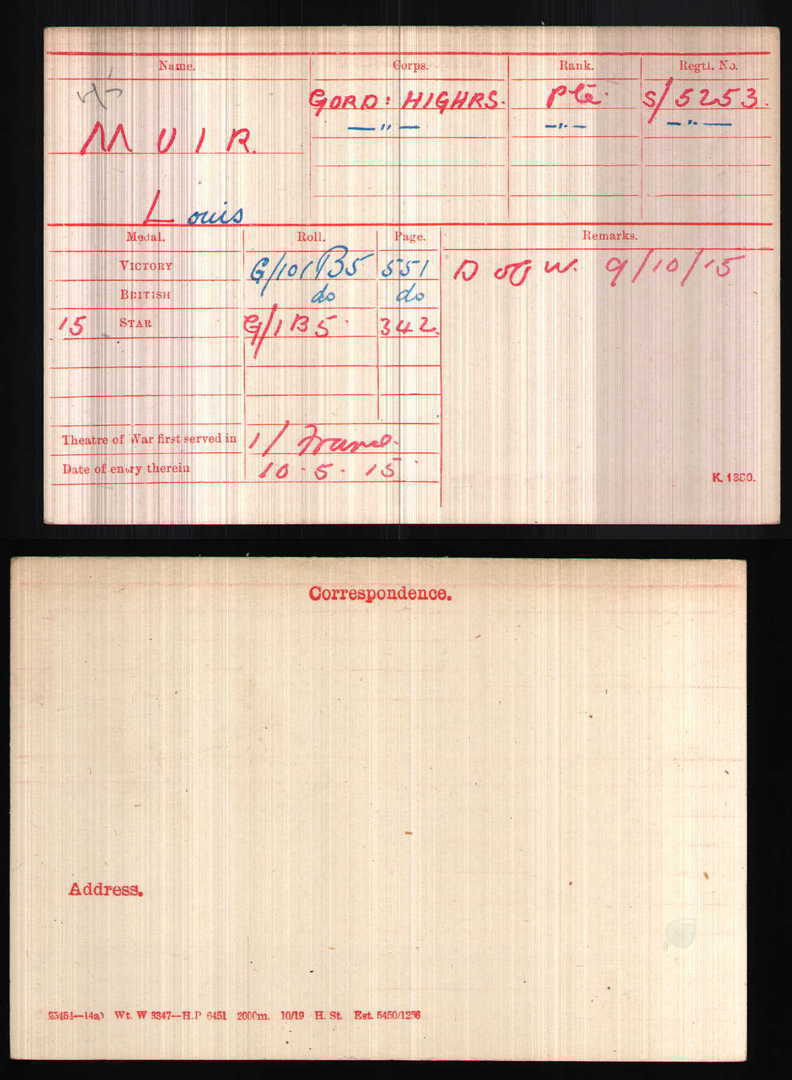 Name. Corps. Rank. Regtl. No.
MUIR. GORD: HIGHRS. Pte. S/5253.
—"— —"— —"—
Louis
Medal. Roll. Page. Remarks.
VICTORY G/101B5 551 D of W. 9/10/15
BRITISH do do
15 STAR G/1B5. 342.
Theatre of War first served in 1/ France.
Date of entry therein 10.5.15
K. 1380.
Correspondence.
Address.
Wt. W 3347—H.P 6451 2000m. 10/19 H. St. Est. 5450/1236